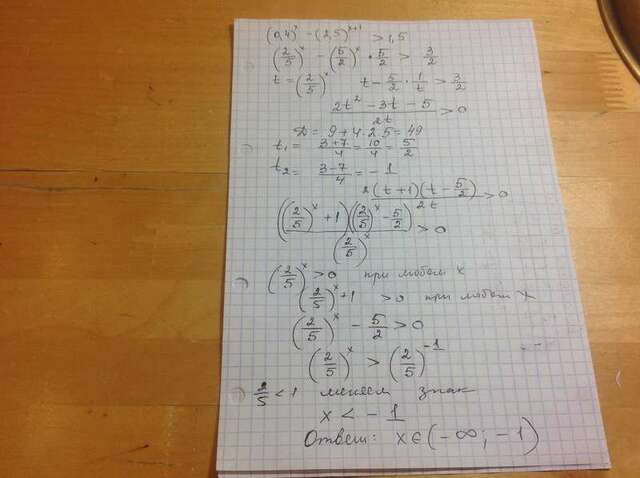 (0,4)^x - (2,5)^{x+1} > 1,5
(2/5)^x - (5/2)^x · 5/2 > 3/2
t = (2/5)^x t - 5/2 · 1/t > 3/2
(2t² - 3t - 5)/2t > 0
D = 9 + 4·2·5 = 49
t₁ = (3+7)/4 = 10/4 = 5/2
t₂ = (3-7)/4 = -1
2(t+1)(t - 5/2)/2t > 0
((2/5)^x + 1)((2/5)^x - 5/2)/(2/5)^x > 0
(2/5)^x > 0 при любом x
(2/5)^x + 1 > 0 при любом x
(2/5)^x - 5/2 > 0
(2/5)^x > (2/5)^{-1}
2/5 < 1 меняем знак
x < -1
Ответ: x ∈ (-∞; -1)